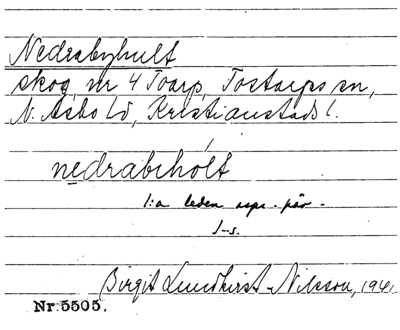 Nedrabyhult
skog, nr 4 Toarp, Tostarps sn,
N. Åsbo hd, Kristianstads l.
nedrabihólt
1:a leden uppr. pár-
J-s.
Birgit Lundkvist-Nilsson, 1941
Nr. 5505.